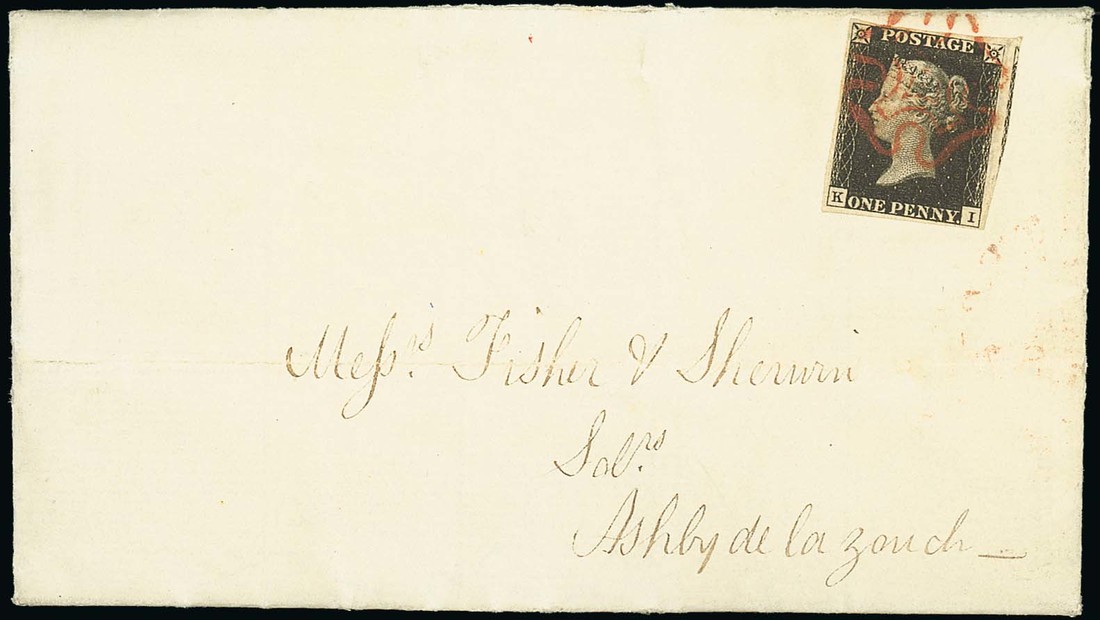 POSTAGE
K ONE PENNY. I
Messrs. Fisher & Sherwin
Solrs.
Ashby de la Zouch